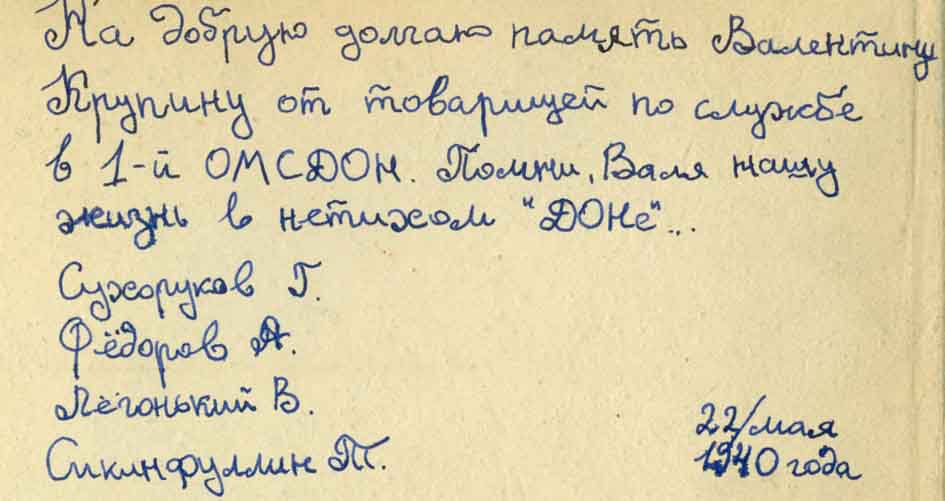 На добрую долгаю память Валентину
Крупину от товарищей по службе
в 1-й ОМСДОН. Помни, Валя нашу
жизнь в нетихом "ДОНе"...
Сухоруков Г.
Фёдоров А.
Лёгонький В.
Т.
22/мая
1940 года